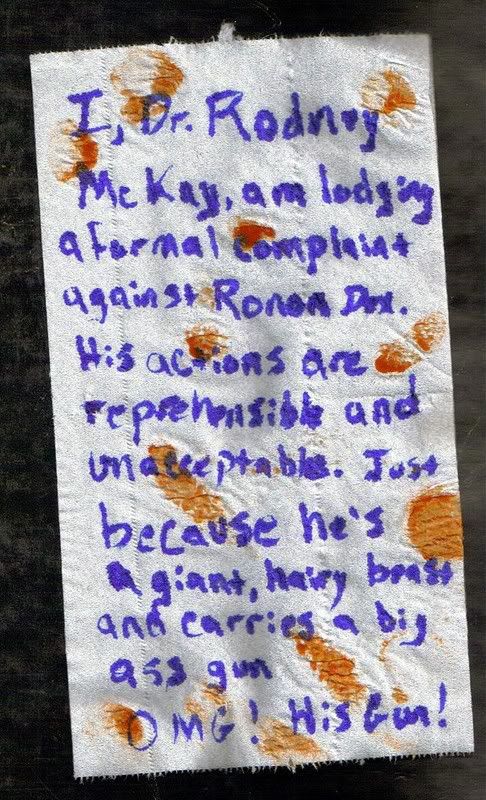 I, Dr. Rodney
McKay, am lodging
a formal complaint
against Ronon Dex.
His actions are
reprehensible and
unacceptable. Just
because he's
a giant, hairy beast
and carries a big
ass gun
OMG! His Gun!